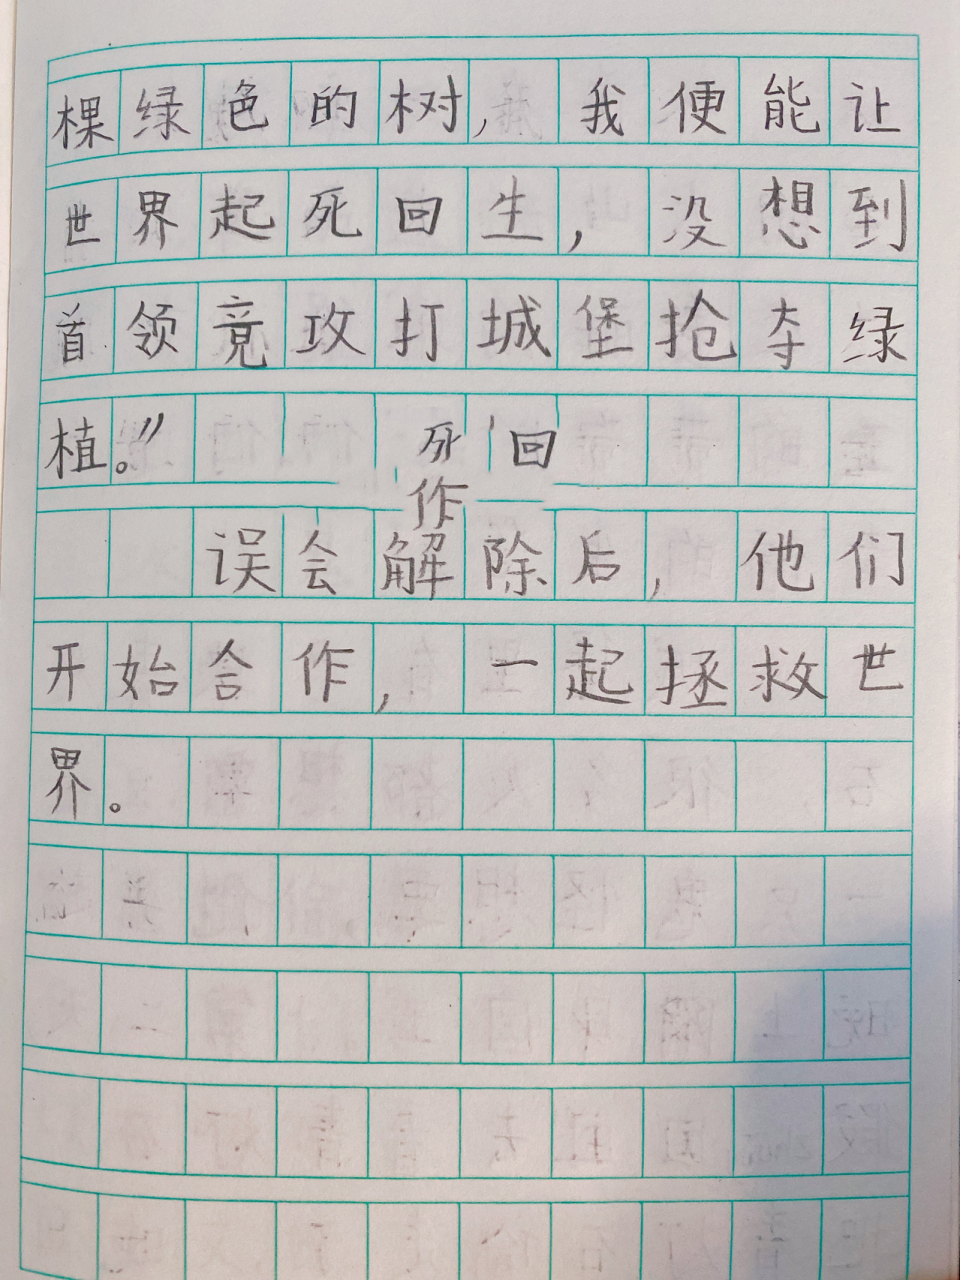 棵绿色的树，我便能让
世界起死回生，没想到
首领竟攻打城堡抢夺绿
植。” 死 回
作
误会解除后，他们
开始合作，一起拯救世
界。